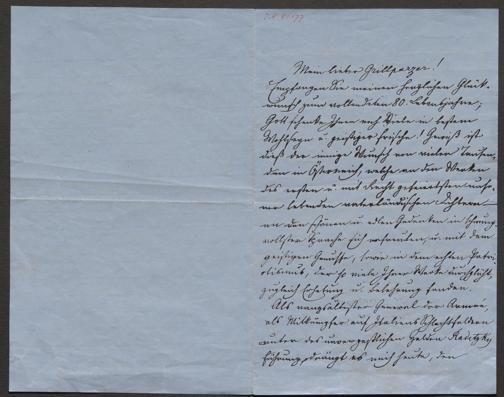 Mein lieber Grillparzer!
Empfangen Sie meinen herzlichen Glück-
wunsch zum vollendeten 80. Lebensjahre;
Gott schenke Ihnen noch Viele in bestem
Wohlsein u. geistiger Frische! Gewiß ist
dieß der innige Wunsch von vielen Tausen-
den in Österreich, welche an den Werken
des ersten u. mit Recht gefeiertsten unse-
rer lebenden vaterländischen Dichter –
an den schönen u. edlen Gedanken in schwung-
vollster Sprache sich erfreuten, u. mit dem
geistigen Genusse, sowie in dem echten Patri-
otismus, der so viele Ihrer Werke durchglüht,
zugleich Erhebung u. Belehrung fanden.
Als rangältester General der Armee,
als Mitkämpfer auf Italiens Schlachtfeldern
unter des unvergeßlichen Helden Radetzky
Führung, drängt es mich heute, den